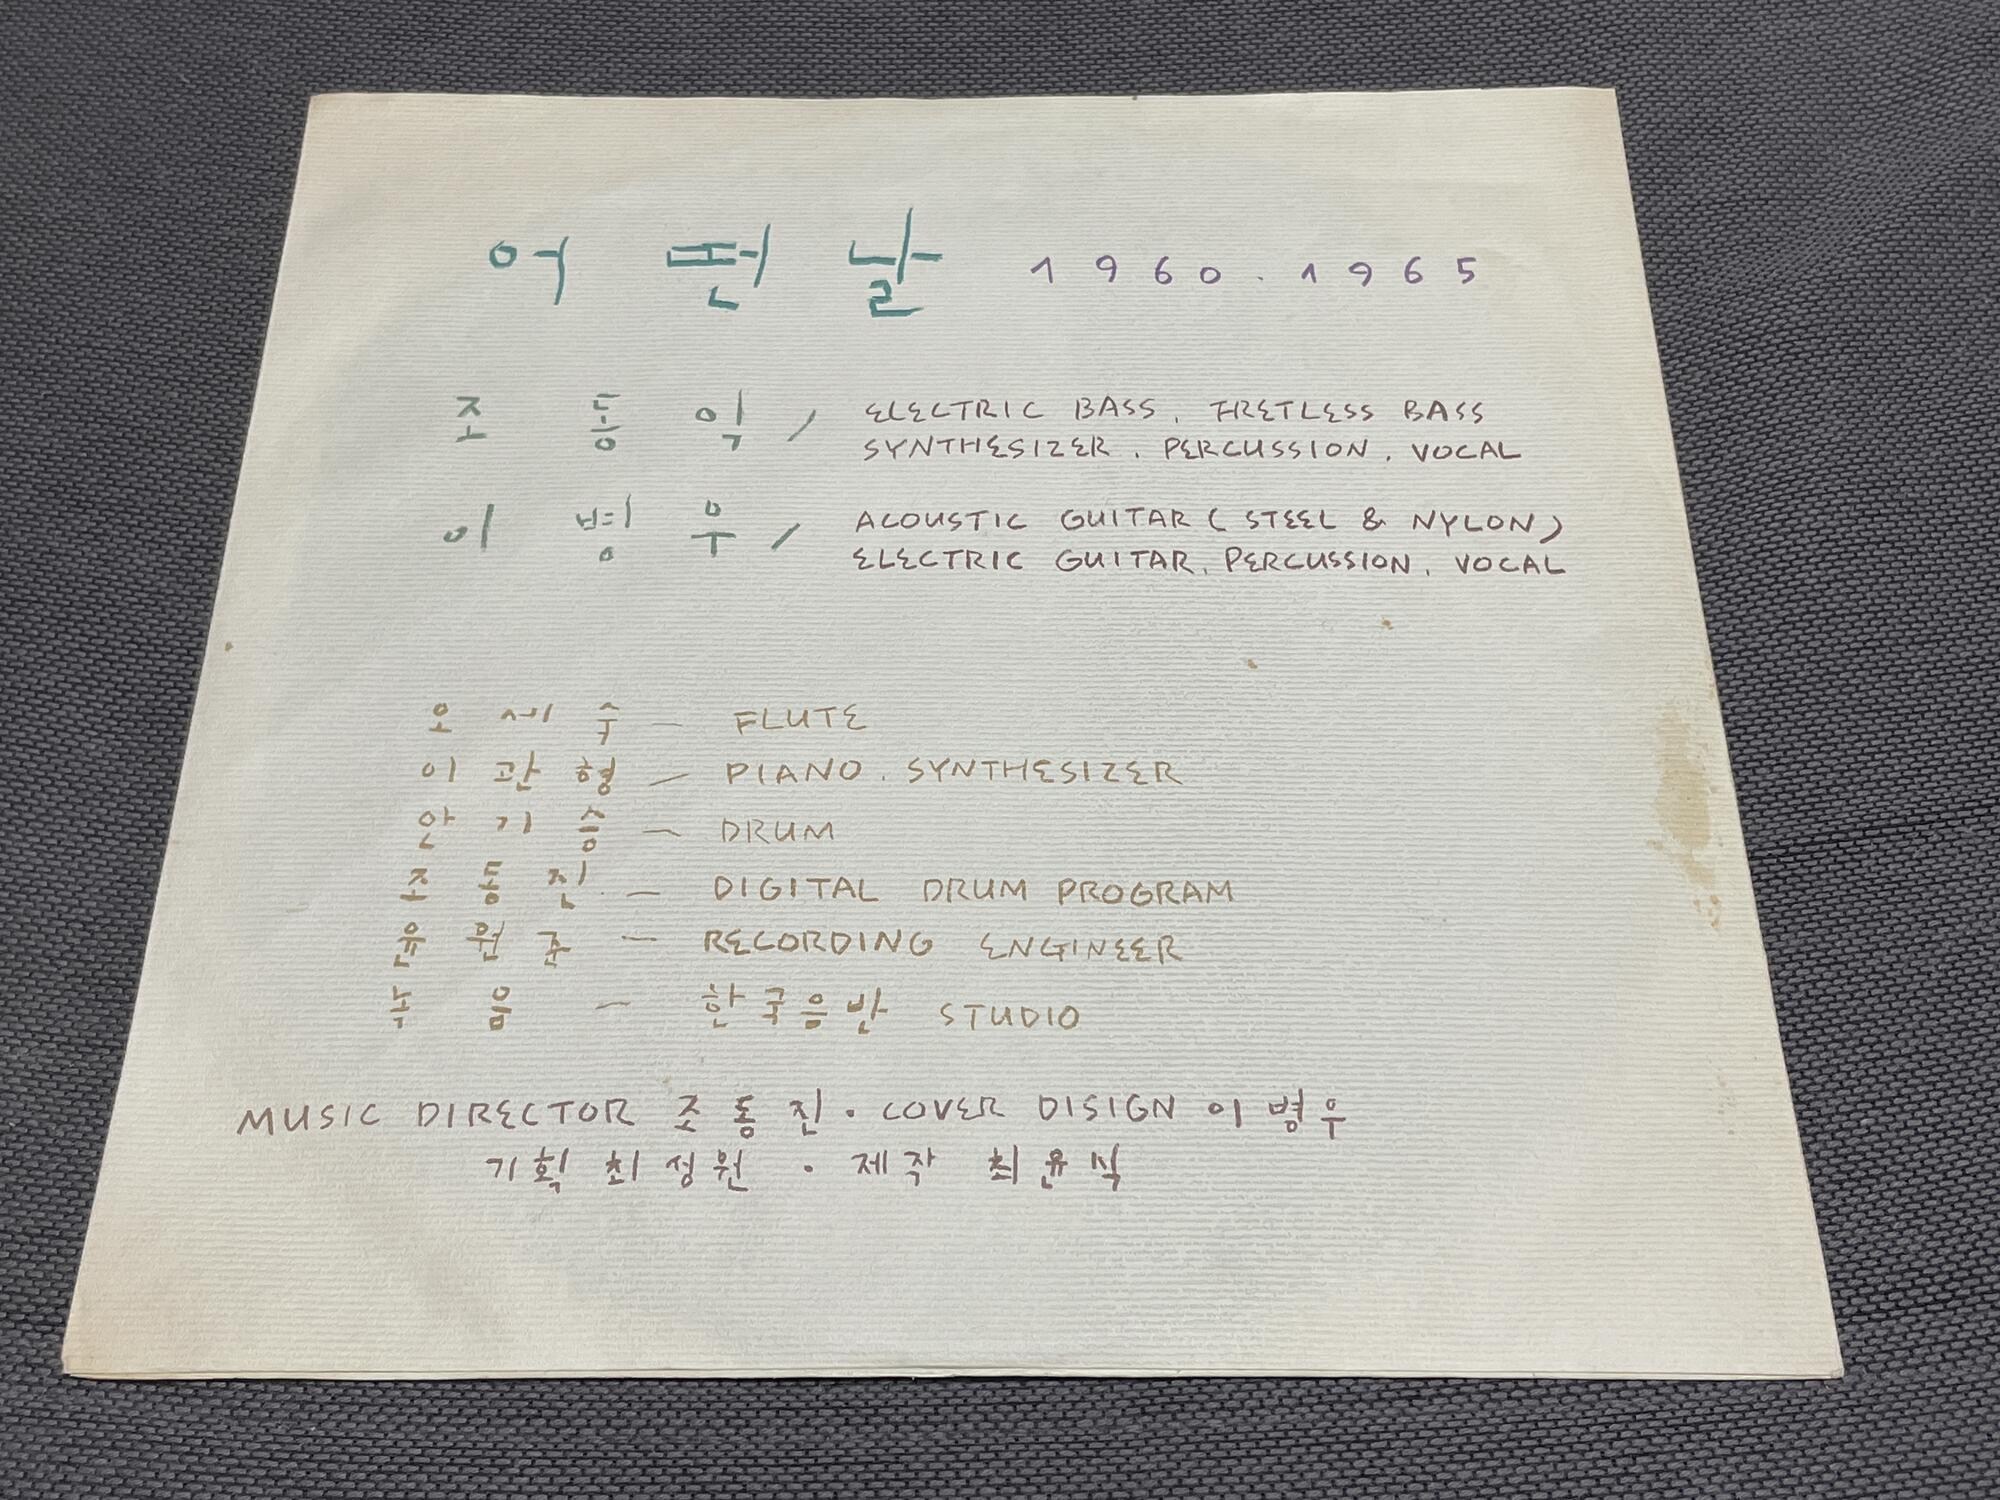 어떤날 1960.1965
조동익 / ELECTRIC BASS. FRETLESS BASS
SYNTHESIZER. PERCUSSION. VOCAL
이병우 / ACOUSTIC GUITAR (STEEL & NYLON)
ELECTRIC GUITAR. PERCUSSION. VOCAL
오세수 — FLUTE
이관형 — PIANO. SYNTHESIZER
안기승 — DRUM
조동진 — DIGITAL DRUM PROGRAM
윤원준 — RECORDING ENGINEER
녹음 — 한국음반 STUDIO
MUSIC DIRECTOR 조동진 · COVER DISIGN 이병우
기획 최성원 · 제작 최윤식